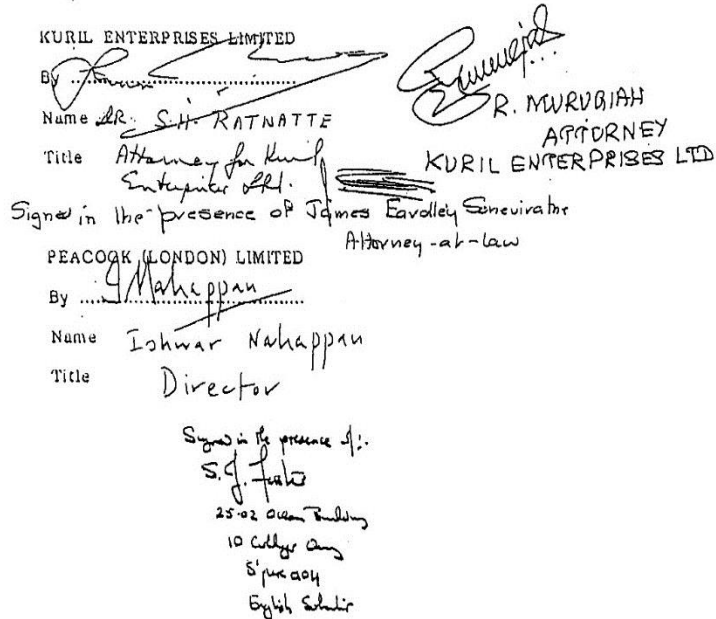 KURIL ENTERPRISES LIMITED
By
Name DR. S.H. RATNATTE
Title Attorney for Kuril
Enterprises Ltd.
R. MURUGIAH
ATTORNEY
KURIL ENTERPRISES LTD
Signed in the presence of James Eardley Seneviratne
Attorney-at-law
PEACOCK (LONDON) LIMITED
By
Name Ishwar Nahappan
Title Director
Signed in the presence of:
S.J.
25-02 Ocean Building
10 Collyer Quay
S'pore 0104
English Solicitor